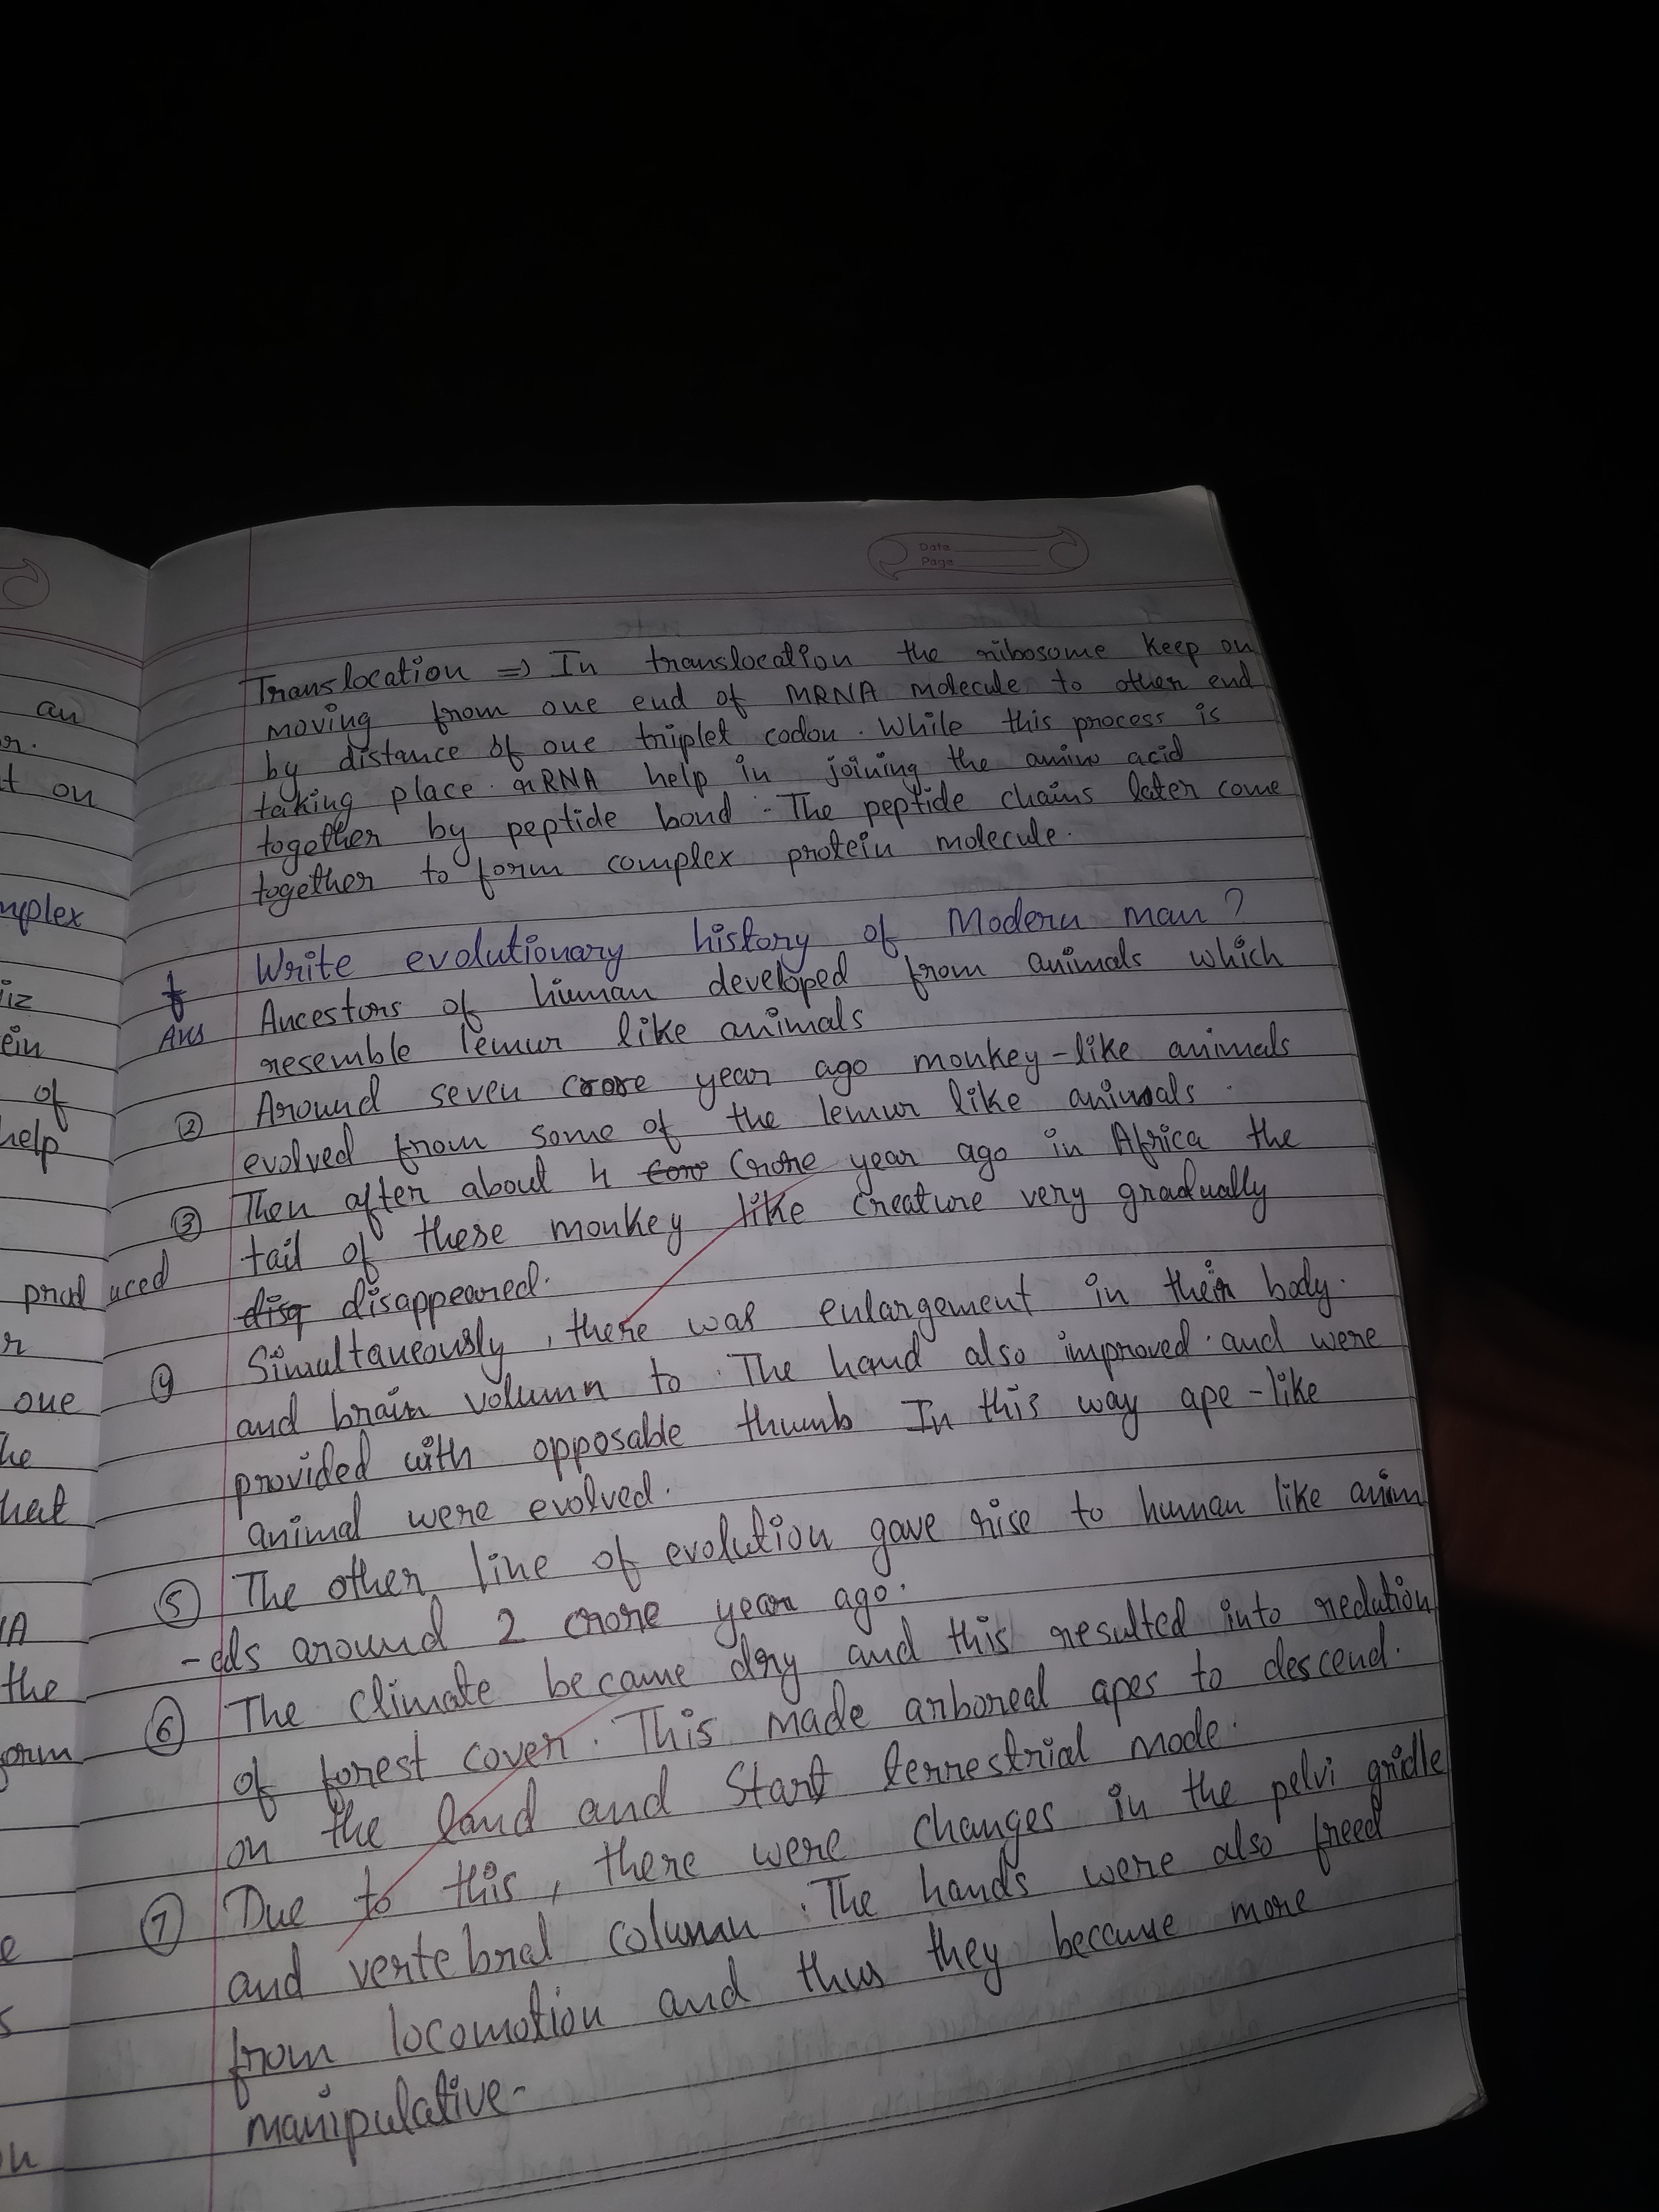 Date
Page
Translocation => In translocation the ribosome keep on
moving from one end of MRNA molecule to other end
by distance of one triplet codon. While this process is
taking place. rRNA help in joining the amino acid
together by peptide bond. The peptide chains later come
together to form complex protein molecule.
Write evolutionary history of Modern man?
Ans Ancestors of human developed from animals which
resemble lemur like animals
② Around seven crore year ago monkey-like animals
evolved from some of the lemur like animals.
③ Then after about 4 Crore year ago in Africa the
tail of these monkey like creature very gradually
disappeared.
④ Simultaneously, there was enlargement in their body.
and brain volumn to. The hand also improved. and were
provided with opposable thumb In this way ape-like
animal were evolved.
⑤ The other line of evolution gave rise to human like anim
-als around 2 crore year ago.
⑥ The climate became dry and this resulted into redution
of forest cover. This made arboreal apes to descend.
on the land and Start terrestrial mode.
⑦ Due to this, there were changes in the pelvi gridle
and vertebral column. The hands were also freed
from locomotion and thus they became more
manipulative-
an
r.
t on
mplex
iz
ein
of
help
produced
r
one
he
hat
IA
the
orm
e
s
on